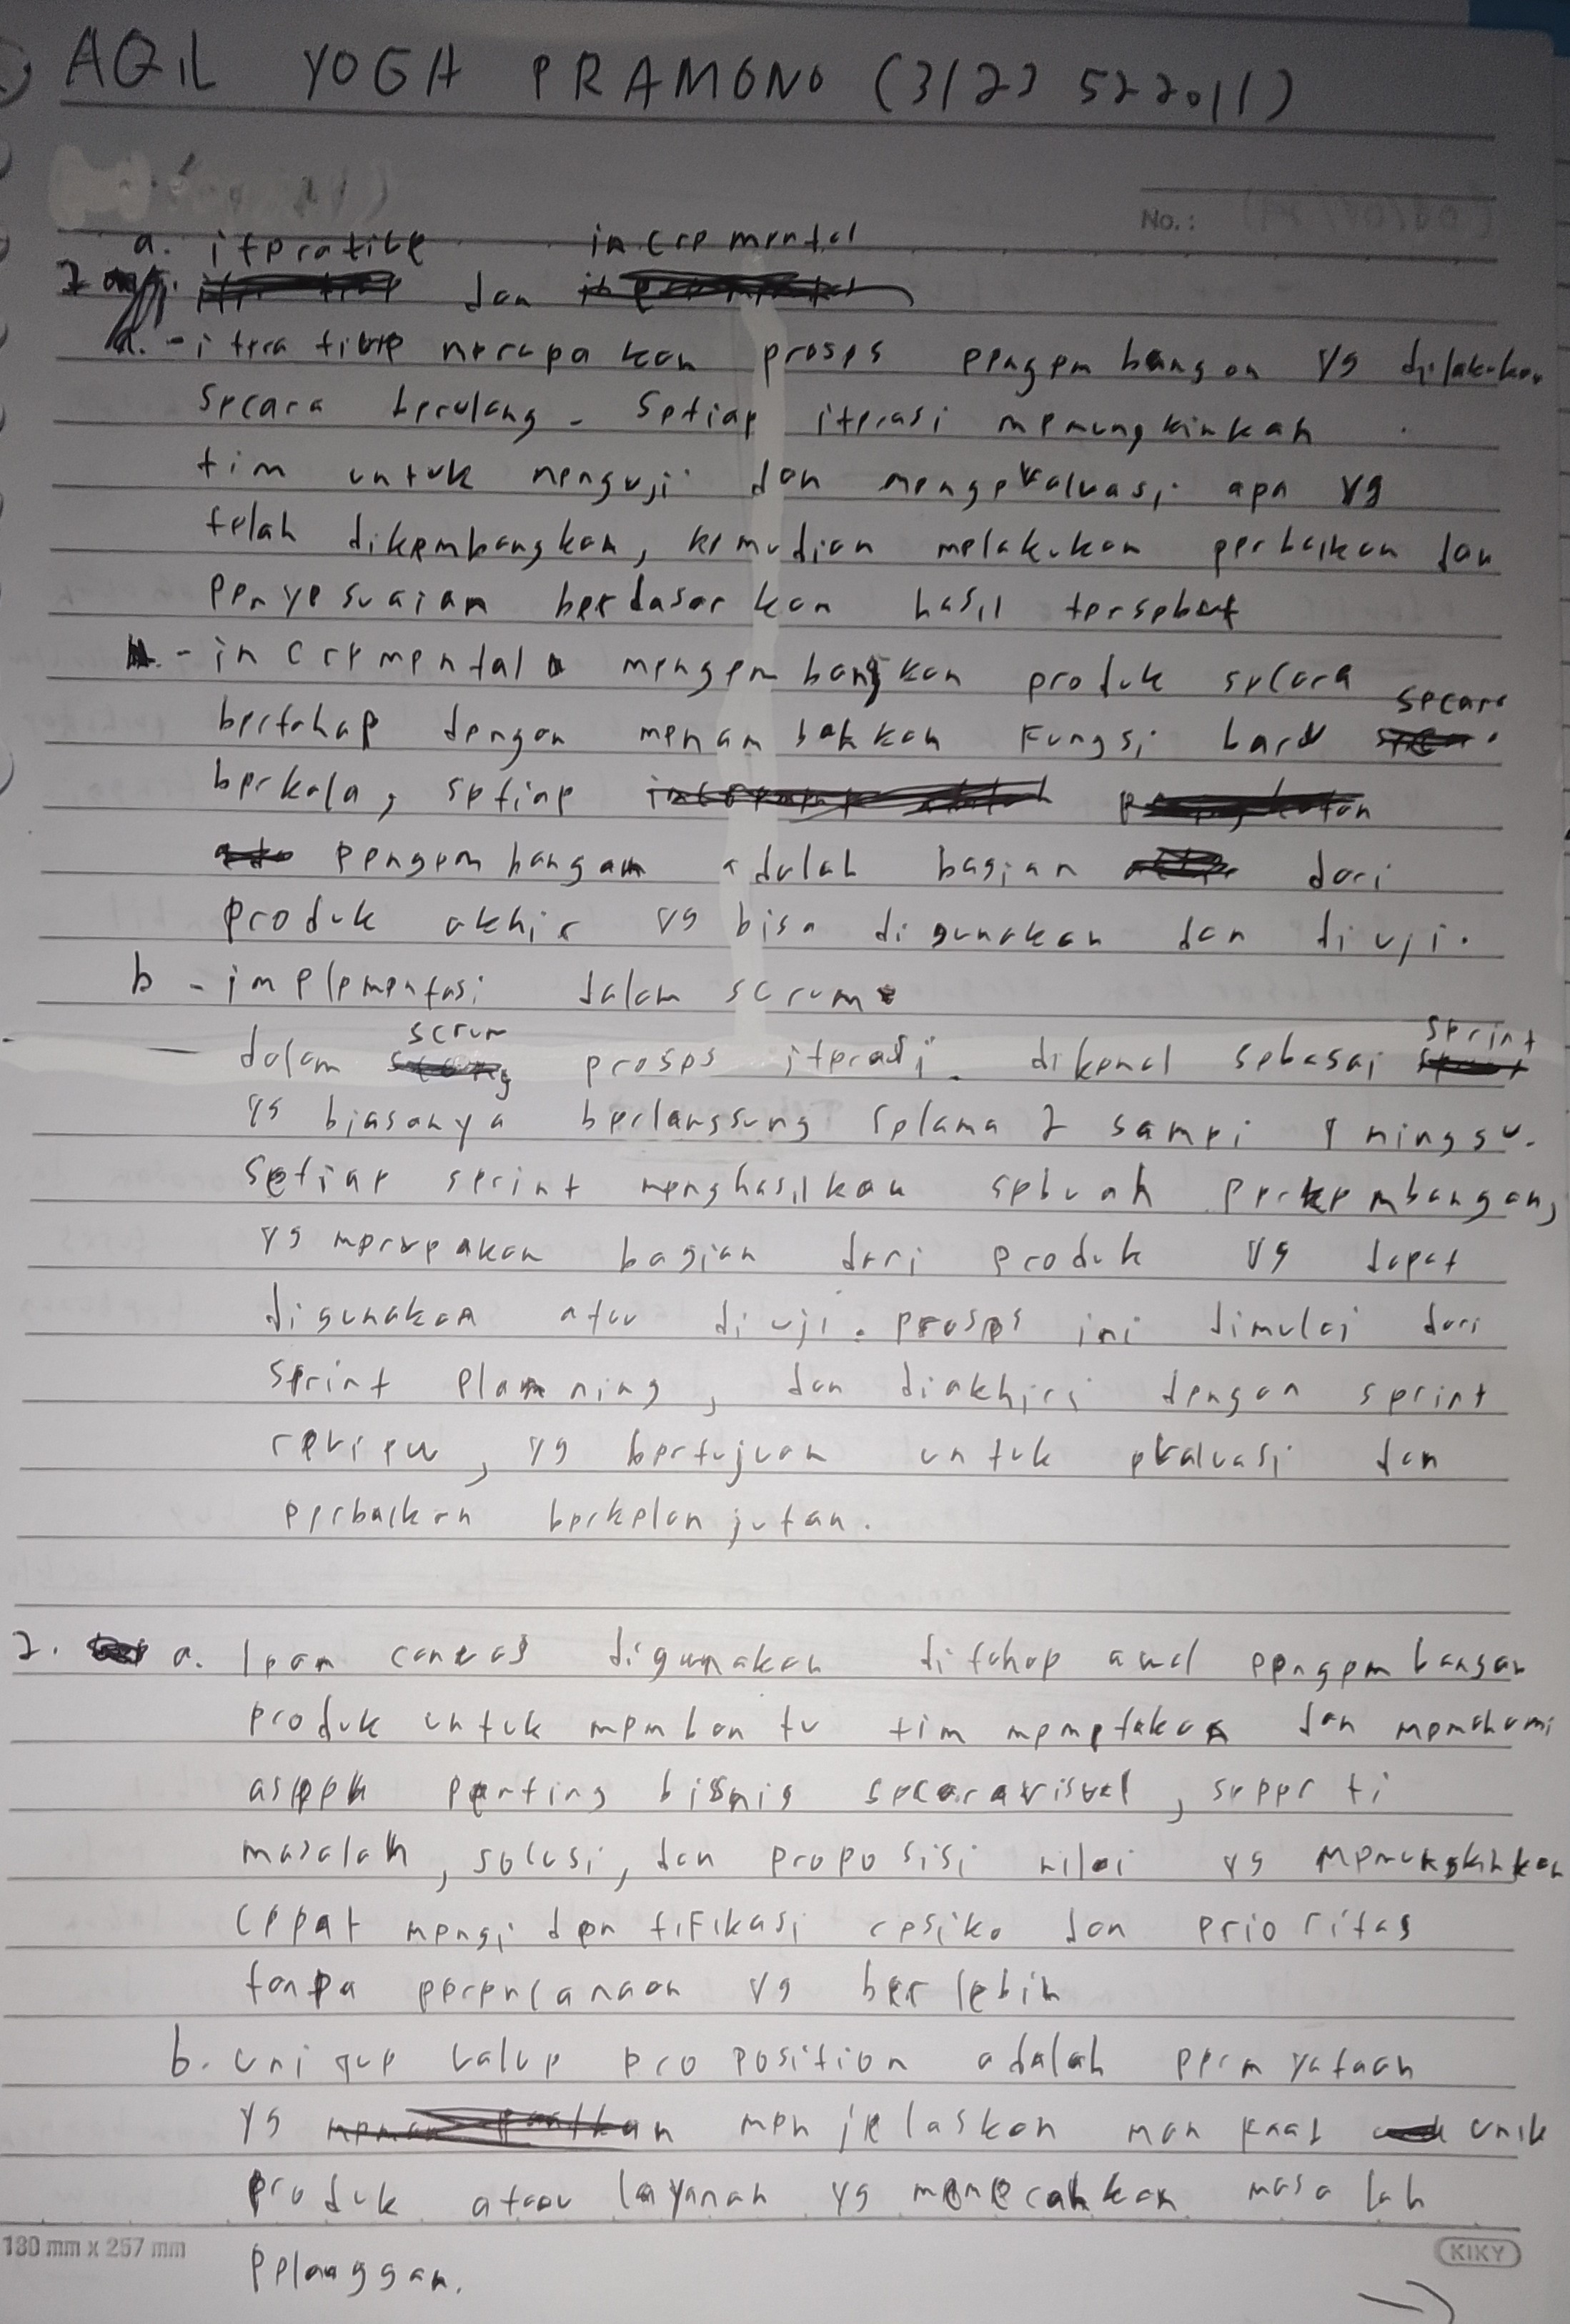 AQIL YOGA PRAMONO (3123522011)
No.:
a. iterative incremental
dan
- iterative merupakan proses pengembangan yg dilakukan
secara berulang - Setiap iterasi memungkinkan
tim untuk menguji dan mengevaluasi apa yg
telah dikembangkan, kemudian melakukan perbaikan dan
penyesuaian berdasarkan hasil tersebut
- incremental mengembangkan produk secara
secara
bertahap dengan menambahkan fungsi baru
berkala, setiap
pengembangan adalah bagian dari
produk akhir yg bisa digunakan dan diuji.
b - implementasi dalam scrum
scrum sprint
dalam proses iterasi. dikenal sebagai
yg biasanya berlangsung selama 2 sampi 4 minggu.
Setiap sprint menghasilkan sebuah perkembangan,
yg merupakan bagian dari produk yg dapat
digunakan atau diuji. proses ini dimulai dari
sprint planning, dan diakhiri dengan sprint
review, yg bertujuan untuk evaluasi dan
perbaikan berkelanjutan.
2. a. lean canvas digunakan ditahap awal pengembangan
produk untuk membantu tim memetakan dan memahami
aspek penting bisnis secara visual, seperti
masalah, solusi, dan proposisi nilai yg memungkinkan
cepat mengidentifikasi resiko dan prioritas
tanpa perencanaan yg berlebih
b. unique value proposition adalah pernyataan
yg menjelaskan manfaat unik
produk atau layanan yg memecahkan masalah
pelanggan.
180 mm x 257 mm
KIKY